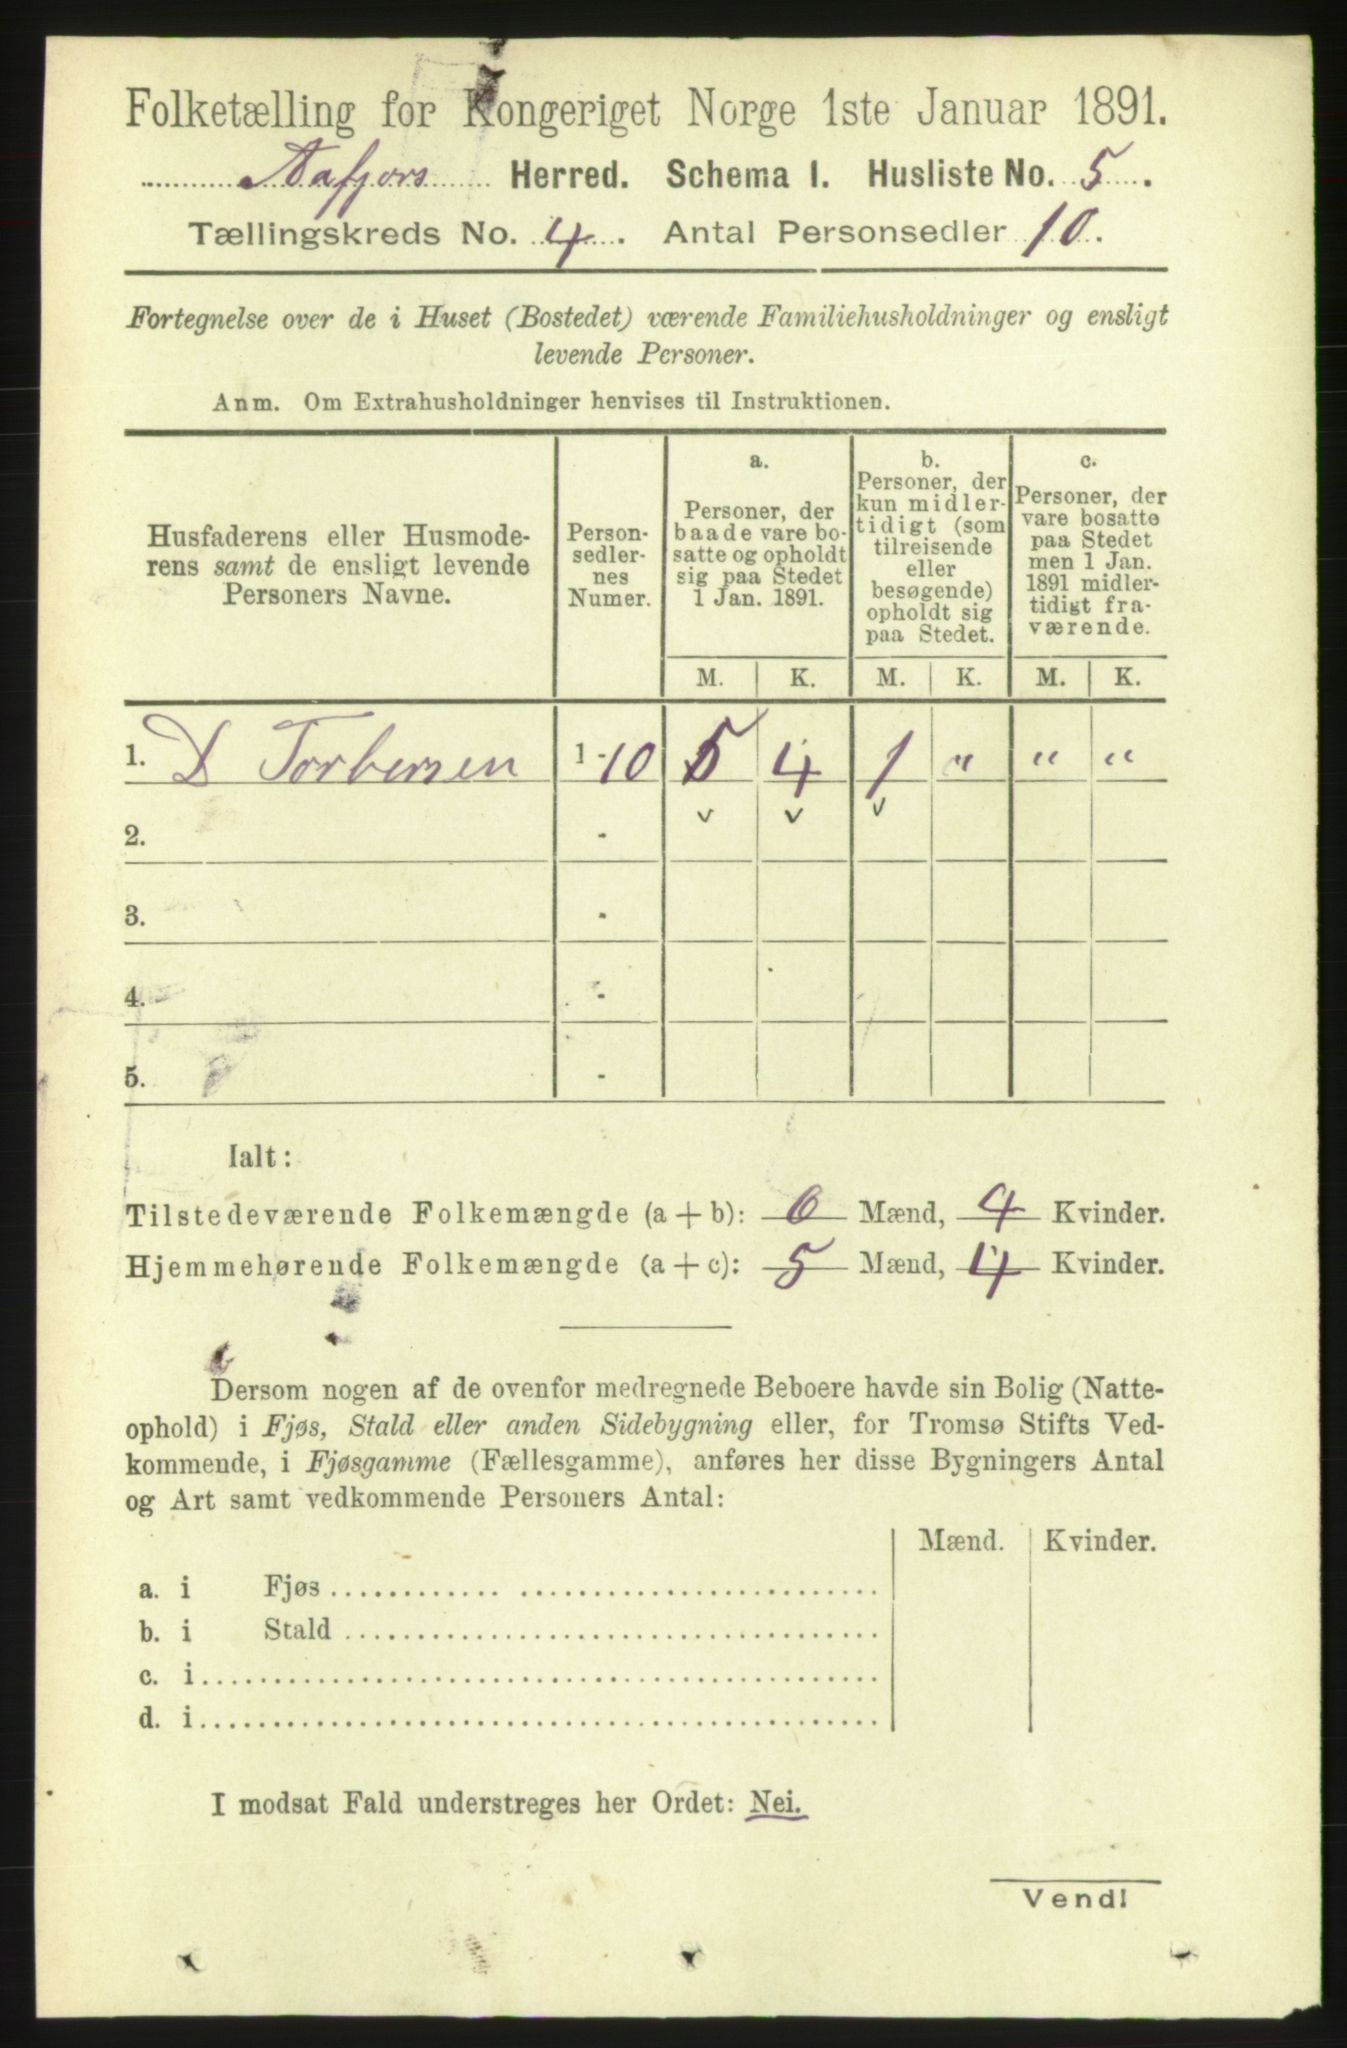 Folketælling for Kongeriget Norge 1ste Januar 1891.
Aafjors Herred. Schema I. Husliste No. 5.
Tællingskreds No. 4. Antal Personsedler 10.
Fortegnelse over de i Huset (Bostedet) værende Familiehusholdninger og ensligt
levende Personer.
Anm. Om Extrahusholdninger henvises til Instruktionen.
Husfaderens eller Husmode-
rens samt de ensligt levende
Personers Navne.
Person-
sedler-
nes
Numer.
a.
Personer, der
baade vare bo-
satte og opholdt
sig paa Stedet
1 Jan. 1891.
b.
Personer, der
kun midler-
tidigt (som
tilreisende
eller
besøgende)
opholdt sig
paa Stedet.
c.
Personer, der
vare bosatte
paa Stedet
men 1 Jan.
1891 midler-
tidigt fra-
værende.
M. K. M. K. M. K.
1. D Torbersen 1-10 5 4 1 " " "
v v v
2. -
3. -
4. -
5. -
Ialt:
Tilstedeværende Folkemængde (a + b): 6 Mænd, 4 Kvinder.
Hjemmehørende Folkemængde (a + c): 5 Mænd, 4 Kvinder.
Dersom nogen af de ovenfor medregnede Beboere havde sin Bolig (Natte-
ophold) i Fjøs, Stald eller anden Sidebygning eller, for Tromsø Stifts Ved-
kommende, i Fjøsgamme (Fællesgamme), anføres her disse Bygningers Antal
og Art samt vedkommende Personers Antal:
Mænd. Kvinder.
a. i Fjøs
b. i Stald
c. i
d. i
I modsat Fald understreges her Ordet: Nei.
Vend!